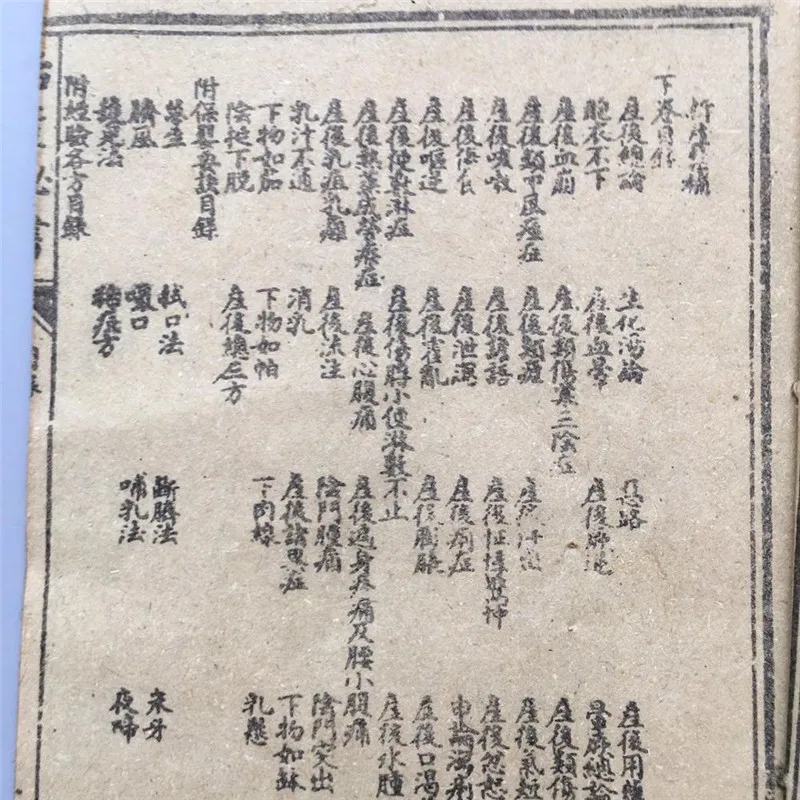 下卷目錄
產後總論 生化湯論 惡露 產後用
胞衣不下 產後血暈 產後厥逆 暈厥總論
產後血崩 產後類傷寒三陰症 產後類傷
產後類中風痙症 產後類瘧 產後汗出 產後氣短
產後咳嗽 產後譫語 產後怔忡驚悸 產後忿怒
產後傷食 產後泄瀉 產後痢症 瀉痢
產後嘔逆 產後霍亂 產後膨脹 產後口渴
產後便數淋症 產後傷脬小便淋數不止 產後水腫
產後熱蒸成勞瘵症 產後心腹痛 產後遍身疼痛及腰小腹痛
產後乳疽乳癰 產後流注 陰門腫痛 陰門突出
乳汁不通 消乳 產後諸症 下物如鉢
下物如茄 下物如帕 下肉線 乳懸
陰挺下脫 產後方
附保嬰要訣目錄
拭口法 斷臍法 朱牙
臍風 噤口 哺乳法 夜啼
護兒法 稀痘方
附經驗各方目錄